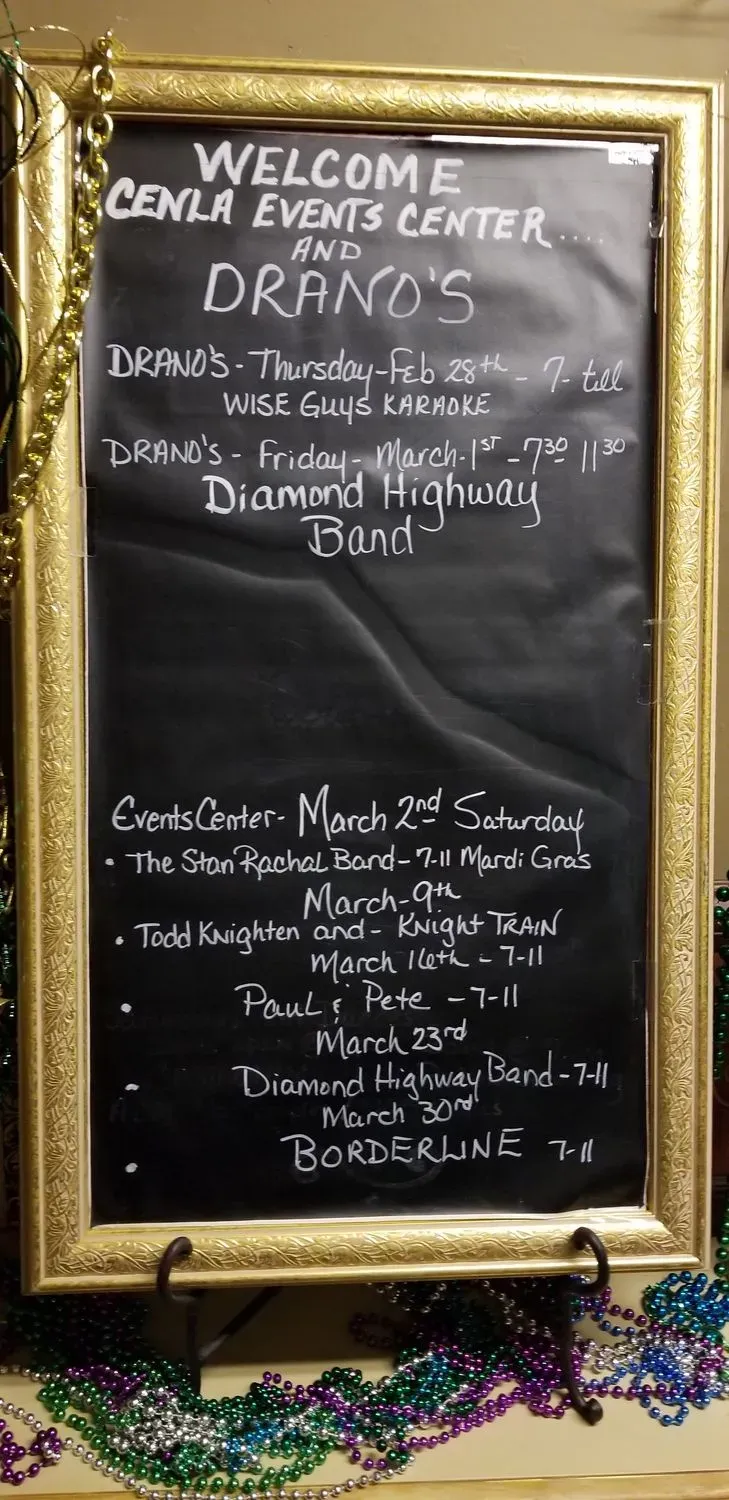 WELCOME
CENLA EVENTS CENTER....
AND
DRANO'S
DRANO'S - Thursday - Feb 28th - 7 - till
WISE GUYS KARAOKE
DRANO'S - Friday - March - 1ST - 730 1130
Diamond Highway
Band
Events Center - March 2nd Saturday
• The Stan Rachal Band - 7-11 Mardi Gras
March - 9th
• Todd Knighten and - Knight TRAIN
March 16th - 7-11
• Paul & Pete - 7-11
March 23rd
• Diamond Highway Band - 7-11
March 30rd
• BORDERLINE 7-11